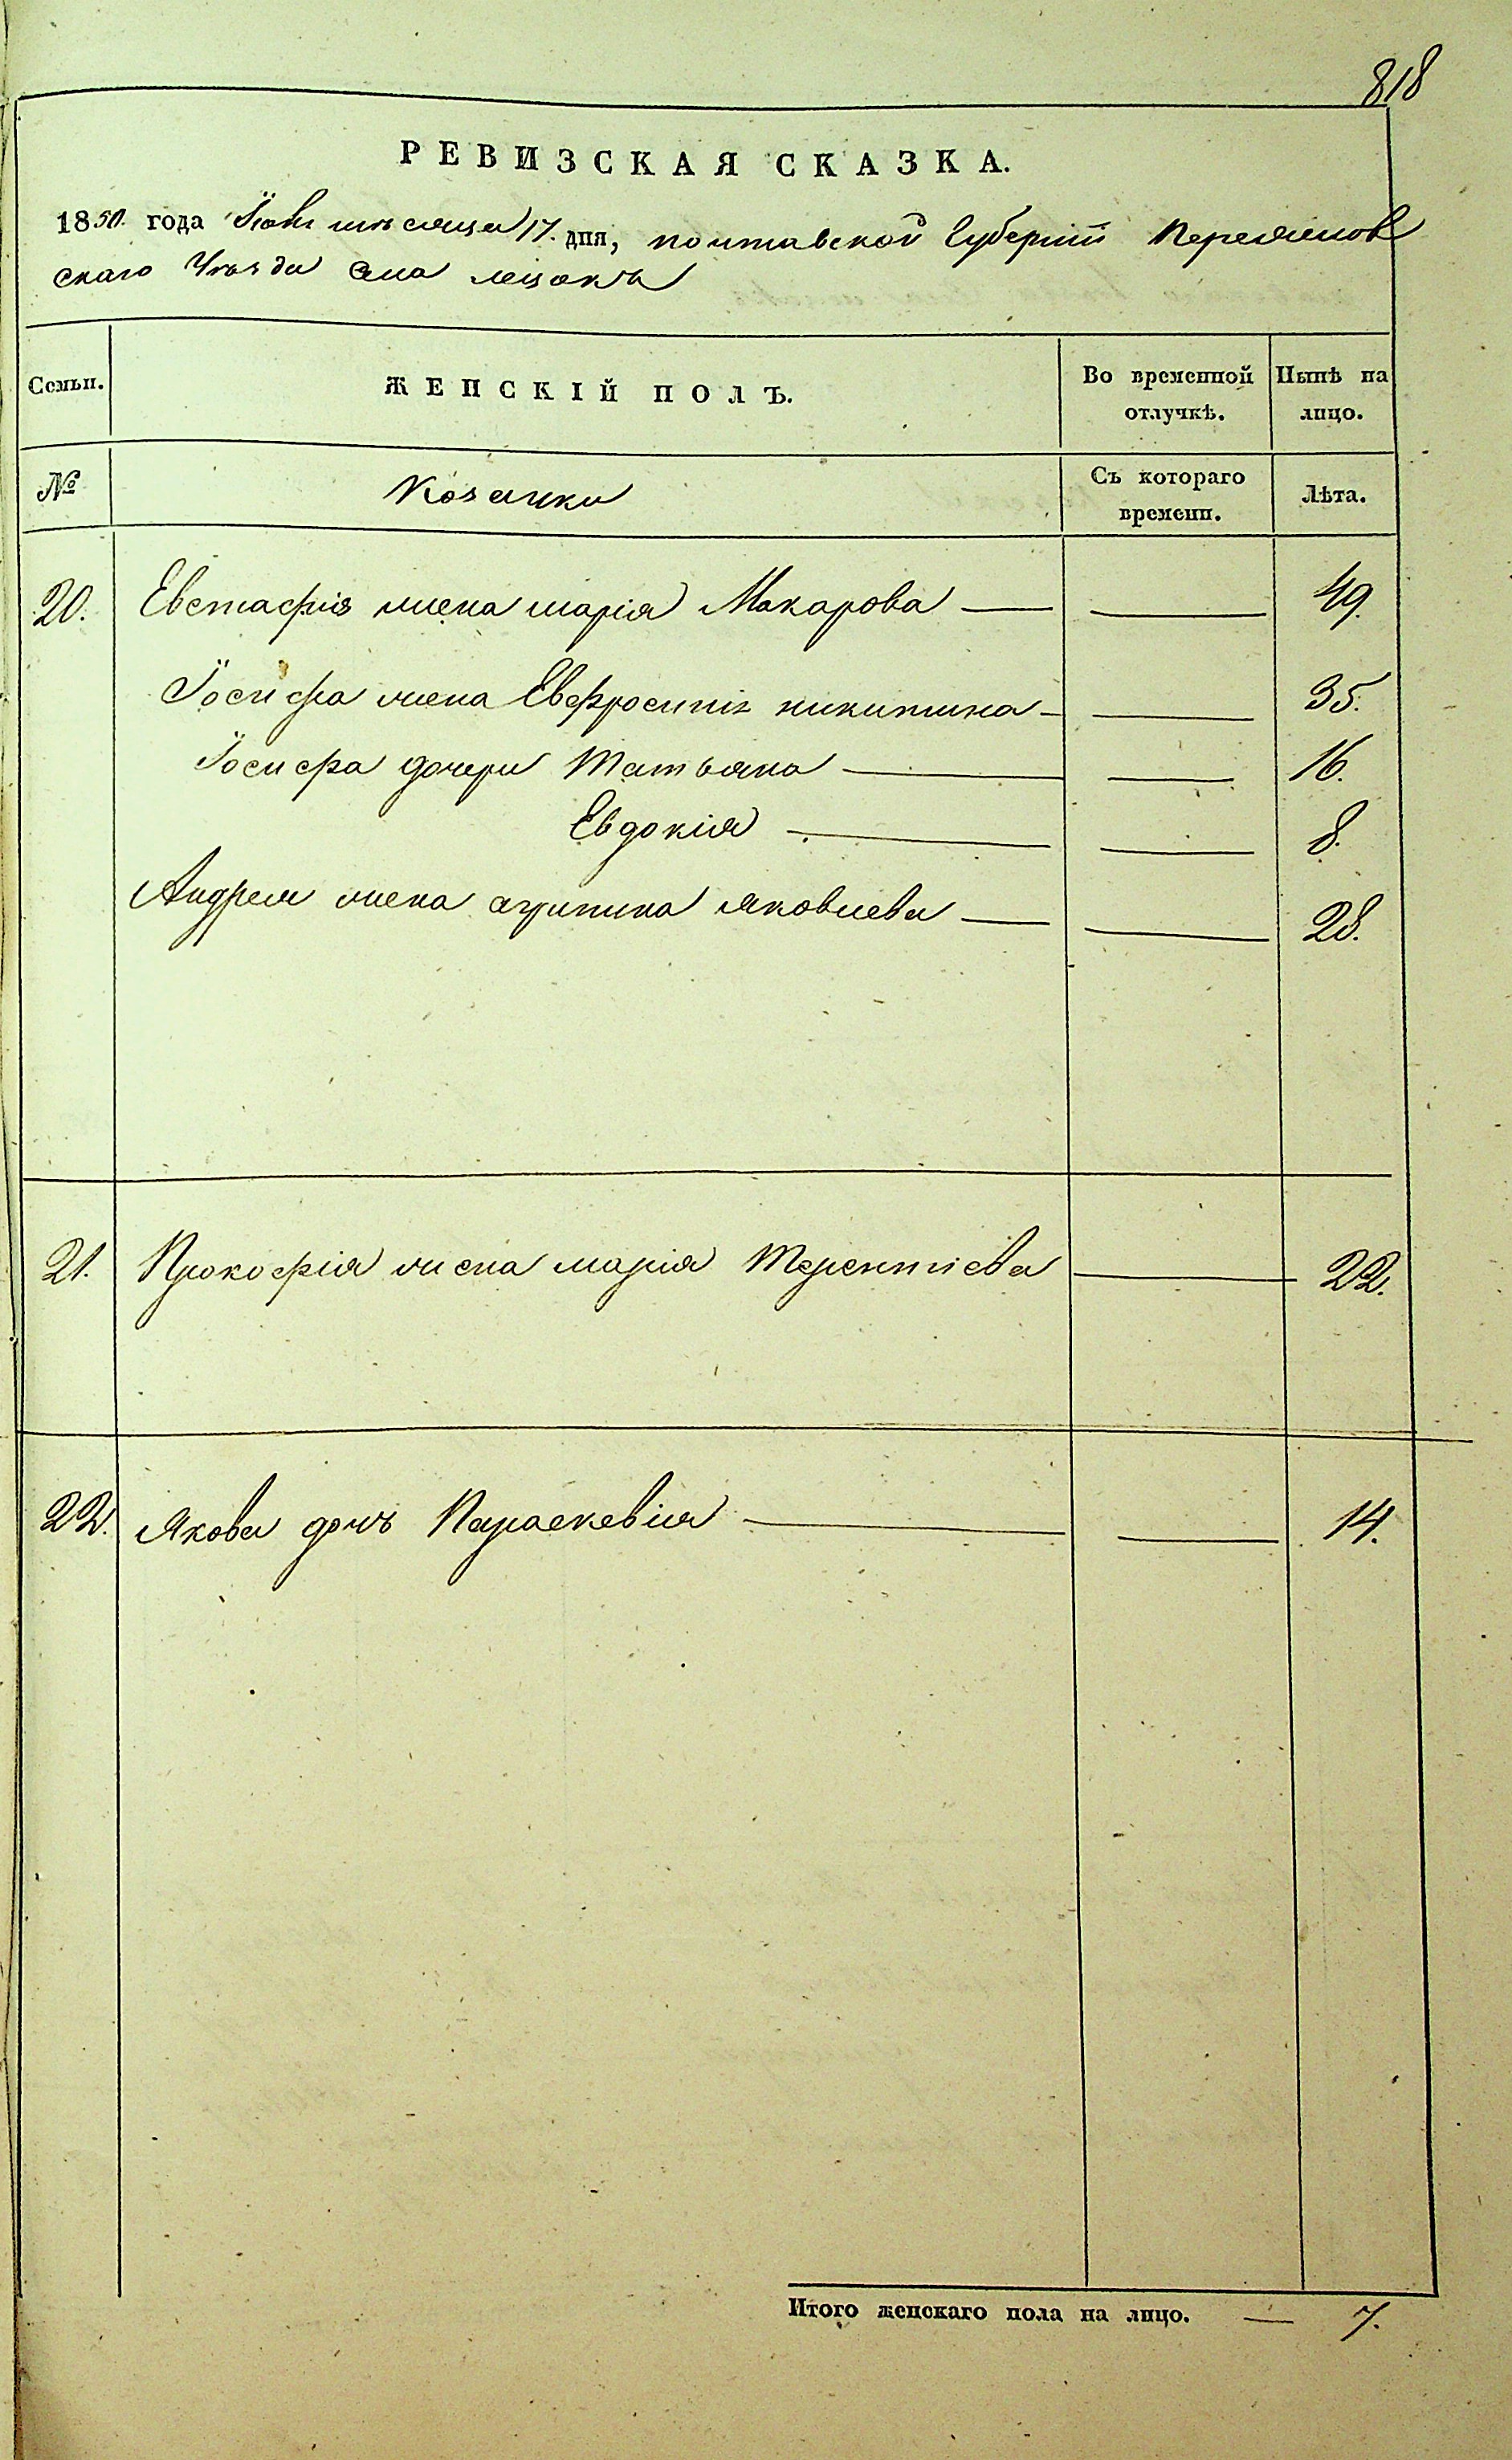 818
РЕВИЗСКАЯ СКАЗКА.
1850. года Іюня мѣсяца 17. дня, полтавской Губерніи Переяслов
скаго Уѣзда села лецокъ
Семьи.
ЖЕНСКІЙ ПОЛЪ.
Во временной отлучкѣ.
Нынѣ на лицо.
№
Козачки
Съ котораго времени.
Лѣта.
20. Евстафія жена марія Макарова — — 49.
Іосифа жена Евфросинія никитина — — 35.
Іосифа дочери Татьяна — — 16.
Евдокія — — 8.
Андрея жена агрипина яковлева — — 28.
21. Прокофія жена марія Терентіева — 22.
22. Якова дочь Параскевія — — 14.
Итого женскаго пола на лицо. — 7.